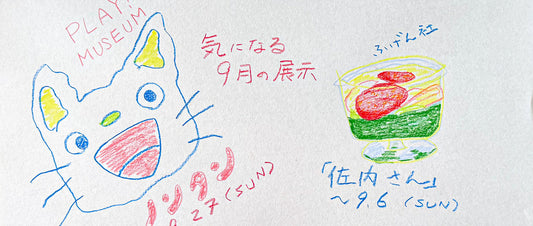 PLAY!
MUSEUM
気になる
9月の展示
ノンタン
9.27(SUN)
ふげん社
「佐内さん」
～9.6 (SUN)